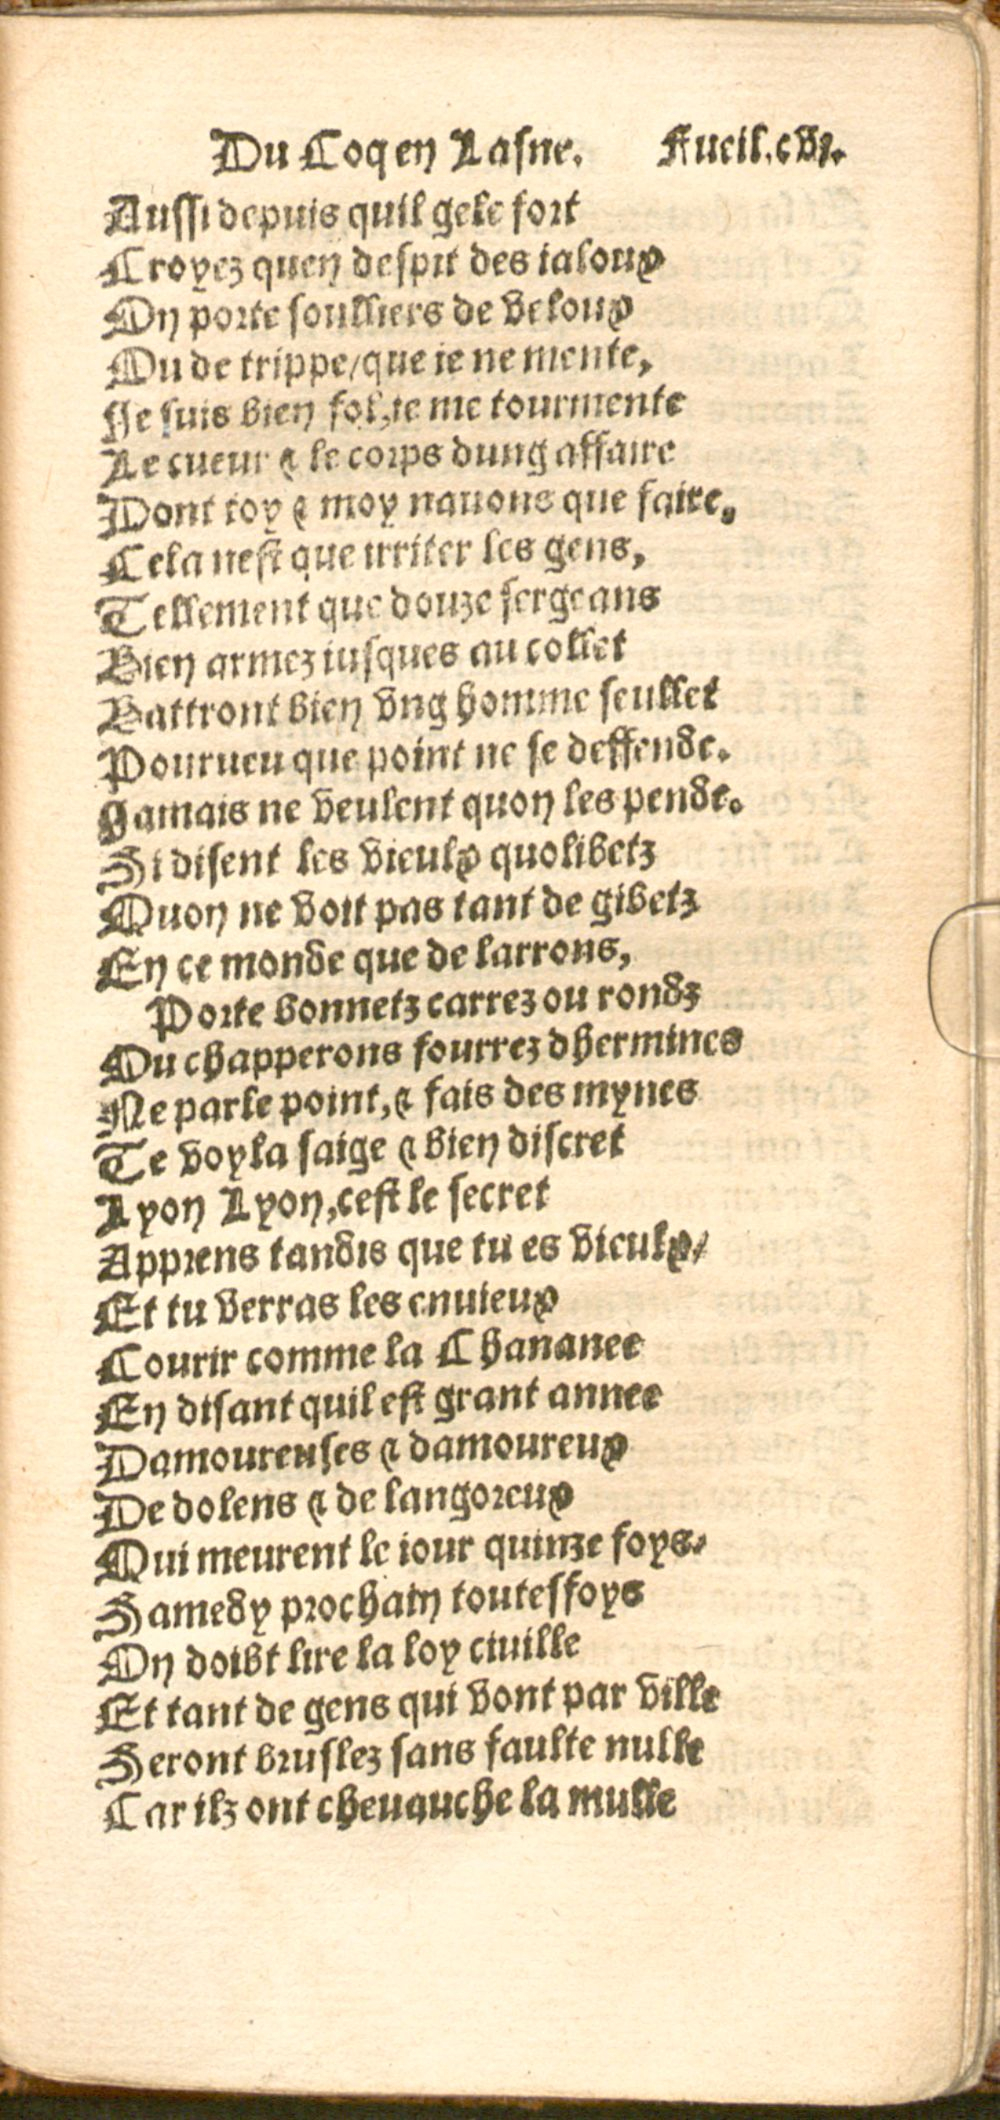 Du Coq en Lasne. Fueil.cvi.
Aussi depuis quil gele fort
Croyez quen despit des ialoux
On porte soulliers de veloux
Ou de trippe/que ie ne mente,
Je suis bien fol,ie me tourmente
Le cueur & le corps dung affaire
Dont toy & moy nauons que faire,
Cela nest que irriter les gens,
Tellement que douze sergeans
Bien armez iusques au collet
Battront bien vng homme seullet
Pourueu que point ne se deffende.
Jamais ne veulent quon les pende.
Si disent les vieulx quolibetz
Quon ne voit pas tant de gibetz
En ce monde que de larrons,
Porte bonnetz carrez ou rondz
Ou chapperons fourrez dhermines
Ne parle point,& fais des mynes
Te voyla saige & bien discret
Lyon Lyon,cest le secret
Apprens tandis que tu es vieulx/
Et tu verras les enuieux
Courir comme la Chananee
En disant quil est grant annee
Damoureuses & damoureux
De dolens & de langoreux
Qui meurent le iour quinze foys/
Samedy prochain toutesfoys
On doibt lire la loy ciuille
Et tant de gens qui vont par ville
Seront bruslez sans faulte nulle
Car ilz ont cheuauche la mulle